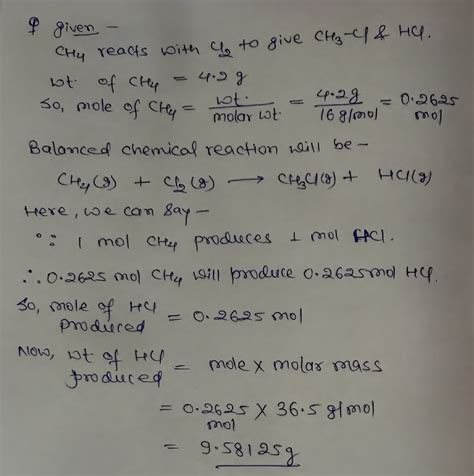 φ given -
CH4 reacts with Cl2 to give CH3-Cl & HCl.
wt. of CH4 = 4.2 g
So, mole of CH4 = wt. / molar wt. = 4.2g / 16 g/mol = 0.2625 mol
Balanced chemical reaction will be -
CH4(g) + Cl2(g) → CH3Cl(g) + HCl(g)
Here, we can say -
∵ 1 mol CH4 produces 1 mol HCl.
∴ 0.2625 mol CH4 will produce 0.2625 mol HCl.
So, mole of HCl produced = 0.2625 mol
Now, wt. of HCl produced = mole x molar mass
= 0.2625 mol X 36.5 g/mol
= 9.58125g